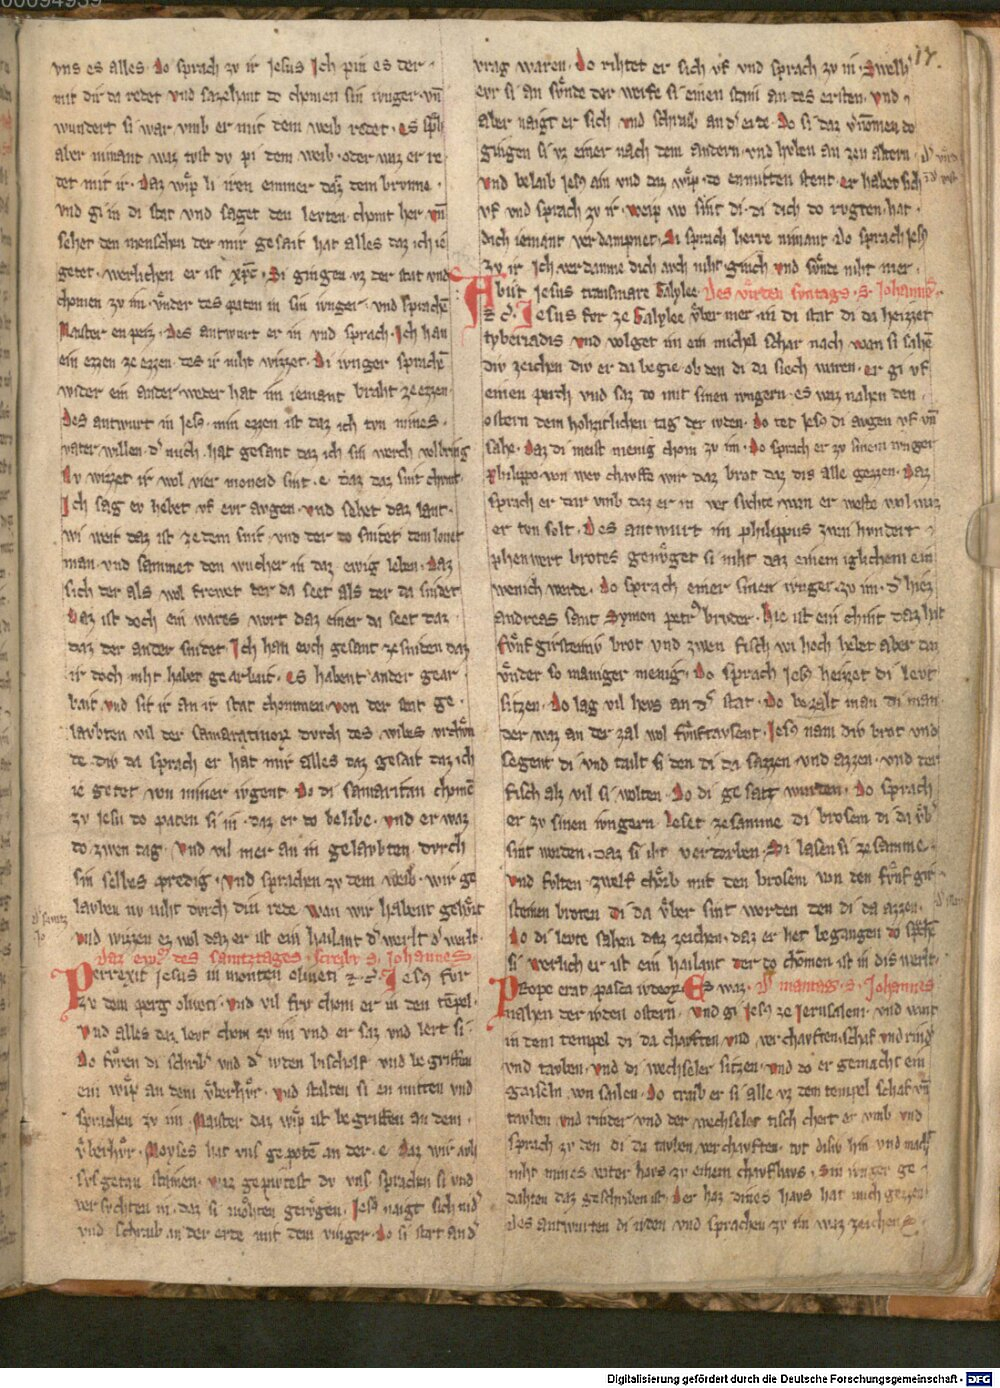 vns es alles. Do sprach zv ir Jesus Ich pin es der
mit dir da redet Vnd sazehant do chomen sin ivnger. vn̄
wundert si war vmb er mit dem weib redet. Es sp̄ch
aber nimant waz tvst dv pi dem weib. oder waz er re
det mit ir. Daz wip li iren emmer daz dem brvnne.
Vnd gi in di stat vnd saget den levten chomt her vn̄
sehet den menschen der mir gesait hat alles daz ich ie
getet. werlichen er ist xp̄c. Si gingen vz der stat vnd
chomen zv im. vnder des paten in sin ivnger. vnd sprachē
Maister enpeiz. Des antwurt er in vnd sprach. Ich han
ein ezzen ze ezzen. des ir niht wizzet. Di ivnger sprachē
wider ein ander. weder hat im iemant braht ze ezzen.
Des antwurt in Jesus. min ezzen ist daz ich tvn mines
vater willen. d' mich. hat gesant daz ich sin werch volbring
Nv wizzet ir wol vier moneid sint. e. daz daz snit chvmt.
Ich sag ev hebet vf evr avgen. vnd sehet daz lant.
wi weit daz ist ze dem snit. vnd der do snidet dem lonet
man. vnd sammet den wucher in daz ewig leben. Daz
sich der als wol frewet der da seet als der da snidet
Daz ist doch ein wares wort daz einer da seet daz
daz der ander snidet. Ich han evch gesant ze sniden daz
ir doch niht habet gearbait. es habent ander gear
bait. vnd sit ir an ir stat chommen. von der stat ge
lavbten vil der samaratinorum dvrch des wibes vrchvn
de. div da sprach er hat mir alles daz gesait daz ich
ie getet von miner ivgent. Do di samaritan chomē
zv Jesu do paten si in. daz er do belibe. vnd er waz
do. zwen tag. Vnd vil mer an in gelavbten dvrch
sin selbes predig. Vnd sprachen zv dem weib. wir ge
lavben nv niht dvrch din rede wan wir habent gehort
vnd wizzen ez wol daz er ist ein hailant d' werlt d' werlt.
Daz ewg' des samtztages. schreibt S. Johannes
Perrexit Jesus in montem oliveti et c. Jesus fvr
zv dem perg oliveti. vnd vil frv chom er in den tēpel.
Vnd alles daz levt chom zv im vnd er saz vnd lert si.
Do fvren di schrib' vnd d' ivden bischolf vnd begriffen
ein wip an dem vberhvr. vnd stalten si en mitten vnd
sprachen zv im Maister daz wip ist begriffen an dem
vberhvr. Moyses hat vns gepotē an der. e. Daz wir
svs getan stainen. waz gepivtest dv vns sprachen si vnd
versvchten in. daz si mohten gervgen. Jesus naigt sich nid'
vnd schraib an der erde mit dem vinger. Do si stet an d'
17.
vrag waren. Do rihtet er sich vf vnd sprach zv in. Swelh'
evr si an svnde der werfe si einen stain an des ersten. vnd
aber naigt er sich vnd schraib an d' erde. Do si daz v'nomen do
gingen si vz einer nach dem andern. vnd hvben an zen altern
vnd belaib Jesus ain vnd daz wip. do enmitten stent. er habet sich
vf vnd sprach zv ir. weip wo sint di. di dich do rvgten. hat
dich iemant verdampnet. Si sprach herre nimant. do sprach Jesus
zv ir Ich verdamne dich avch niht. ginch vnd svnde niht mer.
Abiit Jesus transmare Galylee Des virden svntags. S. Johannes.
et c. Jesus fvr ze Galylee vber mer. in di stat di da heizzet
tyberiadis vnd volget im ein michel schar nach wan si sahē
div zeichen div er da begie. ob den di da siech waren. er gi vf
einen perch vnd saz do mit sinen ivngern. es waz nahen den
ostern dem hohzitlichen tag der ivden. Do tet Jesus di avgen vf vn̄
sahe. daz di meist menig chom zv im. Do sprach er zv sinem ivnger
Philippo. von wev chavffe wir daz brot daz dis alle gezzen. Daz
sprach er dar vmb daz er in versvchte wan er weste wol waz
er tvn solt. Des antwurt im philippus zwen hvndert
phenwert brotes genvget si niht daz einem iglichem ein
wenich werde. Do sprach einer siner ivnger. zv im. d' hiez
andreas sant Symon petr' brvder. Hie ist ein chint daz hat
fvnf girsteiniv brot vnd zwen fisch wi hoch hebet aber daz
vnder so maniger menig. Do sprach Jesus heizzet di levt
sitzen. Do lag vil hevs an d' stat. Do bezalt man di man
der waz an der zal wol fvnftavsent. Jesus nam div brot vnd
segent di vnd tailt si den di da sazzen vnd azzen. vnd der
fisch alz vil si wolten. Do di gesatt wurden. Do sprach
er zv sinen ivngern leset ze samme di brosem di da vb'
sint worden. daz si iht verderben. Di lasen si ze samme.
vnd fvlten zwelf chorb mit den brosem von den fvnf gir
steinen broten di da vber sint worden den di da azzen.
Do di levte sahen daz zeichen. daz er het begangen do sp̄che
si werlich er ist ein hailant der do chomen ist in dis werlt.
Prope erat pasca ivdeorum. Es waz. D' mantag. S. Johannes
nahen der ivden ostern. vnd gi Jesus ze Jerusalem. vnd vant
in dem tempel di da chavften vnd verchavften. schaf vnd rind'
vnd tavben. vnd di wechseler sitzen. vnd do er gemacht ein
gaiseln von sailen. Do traib er si alle vz dem tempel schaf vn̄
tavben vnd rinder vnd der wechseler tisch chert er vmb vnd
sprach zv den di da tavben verchavften. tvt disiv hin vnd macht
niht mines vater havs zv einem chavfhavs. Sin ivnger ge
dahten daz geschriben ist. Der haz dines havs hat mich gezzen
des antwurten di ivden vnd sprachen zv im waz zeichens
Digitalisierung gefördert durch die Deutsche Forschungsgemeinschaft - DFG